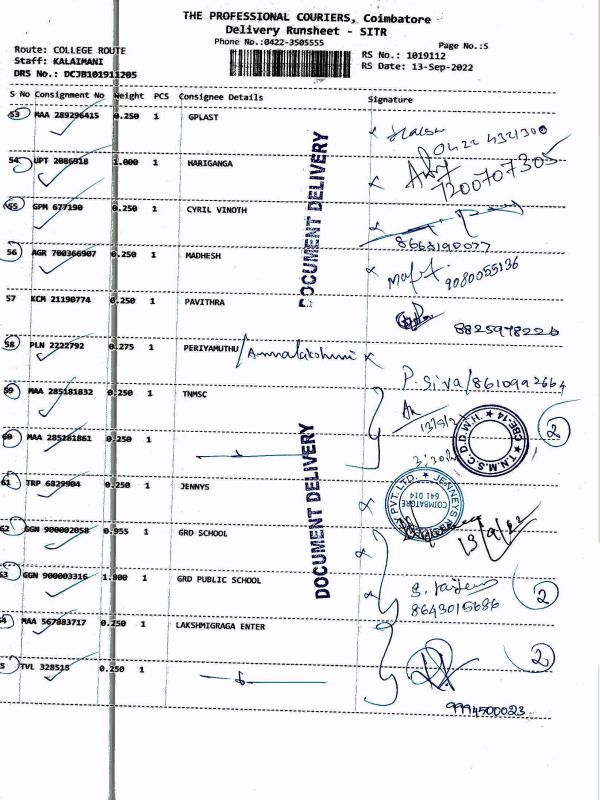 THE PROFESSIONAL COURIERS, Coimbatore
Delivery Runsheet - SITR
Phone No.:0422-3505555
Page No.:5
Route: COLLEGE ROUTE
Staff: KALAIMANI
DRS No.: DCJB101911205
RS No.: 1019112
RS Date: 13-Sep-2022
S No Consignment No Weight PCS Consignee Details Signature
53 MAA 289296415 0.250 1 GPLAST
0422 4321300
54 UPT 2086918 1.000 1 HARIGANGA
7200707305
55 GPM 677190 0.250 1 CYRIL VINOTH
56 AGR 700366907 0.250 1 MADHESH
9080055136
57 KCM 21190774 0.250 1 PAVITHRA
8825978226
58 PLN 2222792 0.275 1 PERIYAMUTHU /Annalakshmi
P. Siva/8610992664
59 MAA 285181832 0.250 1 TNMSC
2
60 MAA 285181861 0.250 1
T.N.M.S.C. D.D.W.H. CBE-14
61 TRP 6829904 0.250 1 JENNYS
JENNEYS PVT. LTD. COIMBATORE 641 014
13/9/22
62 GGN 900002058 0.955 1 GRD SCHOOL
63 GGN 900003316 1.800 1 GRD PUBLIC SCHOOL
8643015686
2
64 MAA 567883717 0.250 1 LAKSHMIGRAGA ENTER
2
5 TVL 328515 0.250 1
9994500023
DOCUMENT DELIVERY
DOCUMENT DELIVERY